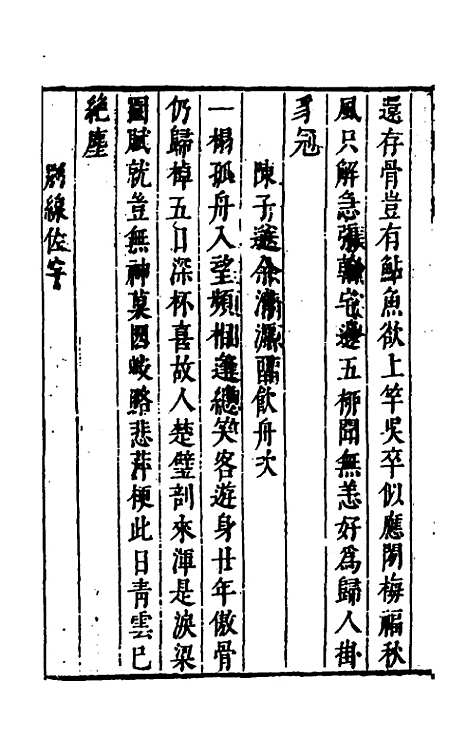 還存骨豈有鮎魚欲上竿吳卒似應閉梅福秋
風只解急張翰宅邊五柳聞無恙好為歸人掛
豸冠
陳子送余濟源醑飲舟次
一榻孤舟入望頻相逢總笑客遊身廿年傲骨
仍歸棹五日深杯喜故人楚璧剖來渾是淚梁
園賦就豈無神莫因岐路悲萍梗此日青雲已
絕塵
別緣佐字